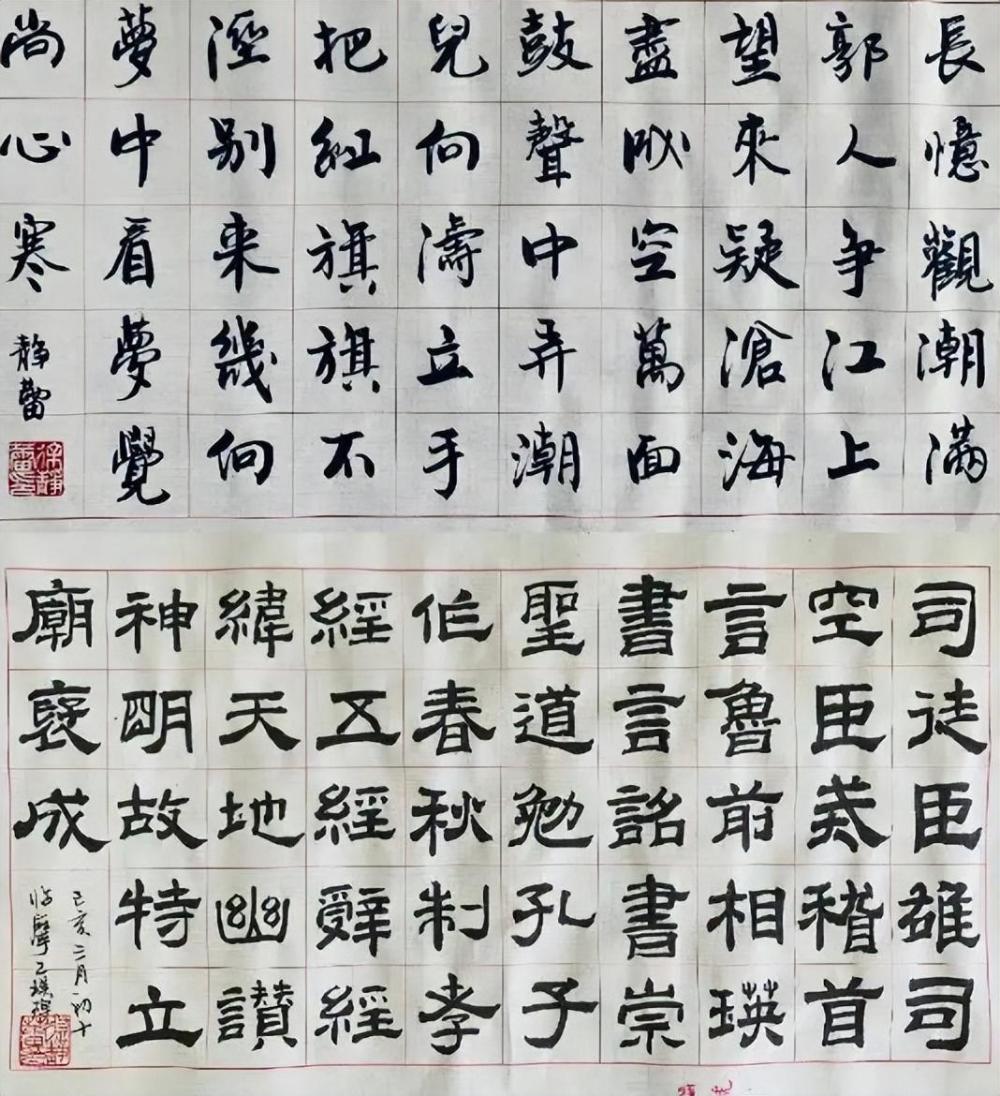 長憶觀潮滿
郭人争江上
望來疑滄海
盡成空萬面
鼓聲中弄潮
兒向濤立手
把紅旗旗不
溼别来幾向
夢中看夢覺
尚心寒
靜蕾
司徒臣雄司
空臣戒稽首
言魯前相瑛
書言詔書崇
聖道勉孔子
作春秋制孝
經五經辭經
緯天地幽讃
神明故特立
廟襃成
己亥三月初十
臨摩乙瑛碑